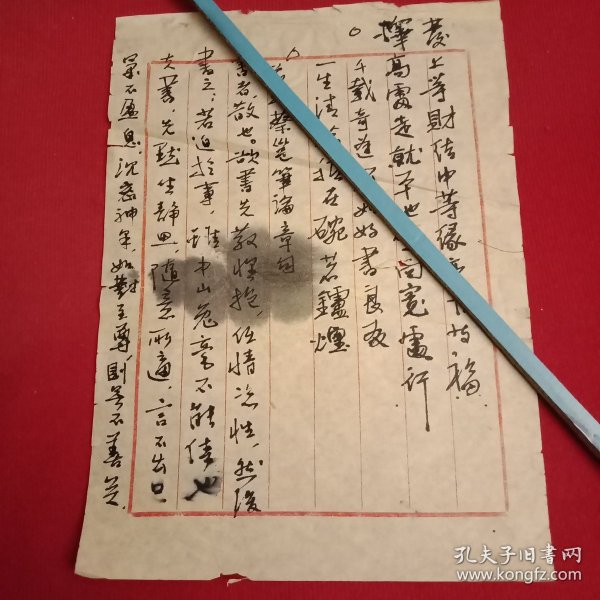 發上等財结中等缘下等福
擇高處走就平也向寬處行
千載奇逢如好書良友
一生清在碗茗鑪煙
蔡邕筆論章句
書者,散也。欲書先散懷抱,任情恣性,然後
書之,若迫於事,雖中山兔毫不能佳也
夫書,先默坐静思,隨意所適,言不出口,
氣不盈息,沉密神采,如對至尊,則無不善矣.
孔夫子旧书网
www.kongfz.com